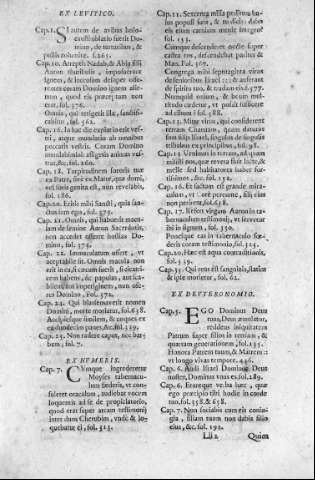 EX LEVITICO.
Cap.1. SI autem de avibus holo-
causti oblatio fuerit Do-
mino, de turturibus, &
pullis columbæ. f.265.
Cap.10. Arreptis Nadab, & Abiu filij
Aaron thuribulis, imposuerunt
ignem, & incensum desuper offe-
rentes coram Domino ignem alie-
num, quod eis præceptum non
erat, fol. 376.
Omnis, qui tetigerit illa, sanctifi-
cabitur, fol. 362.
Cap. 16. In hac die expiatio erit ves-
tri, atque mundatio ab omnibus
peccatis vestris. Coram Domino
mundabimini:
&c. fol. 260.
Cap. 18. Turpitudinem sororis tuæ
ex Patre, sive ex Matre, quæ domi,
vel foris genita est, non revelabis,
fol. 186.
Cap.19. Estote mihi Sancti, quia san-
ctus sum ego, fol. 375.
Cap. 21. Omnis, qui habuerit macu-
lam de semine Aaron Sacerdotis,
non accedet offerre hostias Do-
mino, fol. 374.
Cap. 22. Immaculatum offert, ut
acceptabile sit. Omnis macula non
erit in eo, si cæcum fuerit, si cicatri-
cem habens, &c.
Domino, fol. 374.
Cap. 24. Qui blasphemaverit nomen
Domini, morte moriatur, fol.658.
Accipiesque similam, & coques ex
ea duodecim panes, &c. fol. 339.
Cap. 25. Non radetis caput, nec bar-
bam, fol. 7.
EX NUMERIS.
Cap. 7. CUmque ingrederetur
Moyses tabernacu-
lum fœderis, ut consu-
leret oraculum, audiebat vocem
loquentis ad se de propiciatorio,
quod erat super arcam testimonij
inter duos Cherubim, unde & lo-
quebatur ei, fol. 323.
Cap. 11.
populi sunt, &
eis enim carnium
fol. 151.
Cumque descenderet nocte super
castra ros, descendebat pariter &
Man. Fol. 367.
Congrega mihi septuaginta viros
de senioribus Israel, & auferam
de spiritu tuo, & tradam eis. f. 377.
Numquid ovium, & boum mul-
titudo cædetur, ut possit sufficere
ad cibum? fol. 388.
Cap. 13. Mitte viros, qui considerent
terram Chanaan, quam daturus
sum filijs Israel, singulos de singulis
tribubus ex principibus, fol. 98.
Cap. 13. Venimus in terram, ad quam
misisti nos, quæ revera fluit lacte, &
melle sed habitatores habet for-
tissimos, &c. fol. 152.
Cap. 16. Et factum est grande mira-
culum, ut Core pereunte, filij eius
non perirent, fol. 338.
Cap. 17. Refer virgam Aaron in ta-
bernaculum testimonij, ut servetur
ibi in signum, fol. 330.
Posuique eas in tabernaculo fœ-
deris coram testimonio, fol. 325.
Cap. 20. Hæc est aqua contradictionis,
fol. 339.
Cap. 35.
& ipse morietur, fol. 62.
EX DEUTERONOMIO.
Cap.5. EGO Dominus Deus
tuus, Deus æmulator,
reddens iniquitatem
Patrum super filios in tertiam, &
quartam generationem, fol. 135.
Honora Patrem tuum, & Matrem:
ut longo vivas tempore. 446.
Cap. 6. Audi Israel Dominus Deus
noster, Dominus unus est. fol.289.
Cap. 6. Eruntque verba hæc, quæ
ego præcipio tibi hodie in corde
tuo, fol. 358. & 658.
Cap. 7. Non sociabis cum eis coniu-
gia, filiam tuam non dabis filio
eius, &c. fol. 192.
Lll 2 Quien